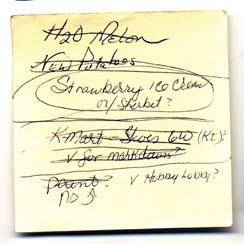 H20 Melon
New Potatoes
Strawberry ice cream
or sherbet?
K Mart - Shoes 6W (KI)?
√ for markdowns?
paint? √ Hobby Lobby?
no